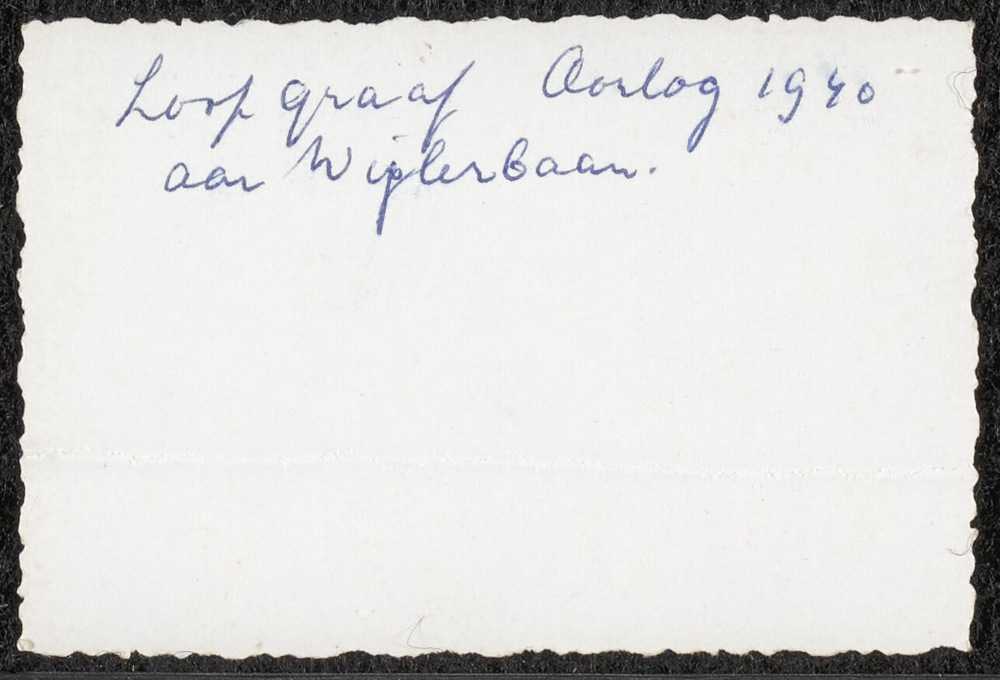 Loopgraaf Oorlog 1940
aan Wijlerbaan.